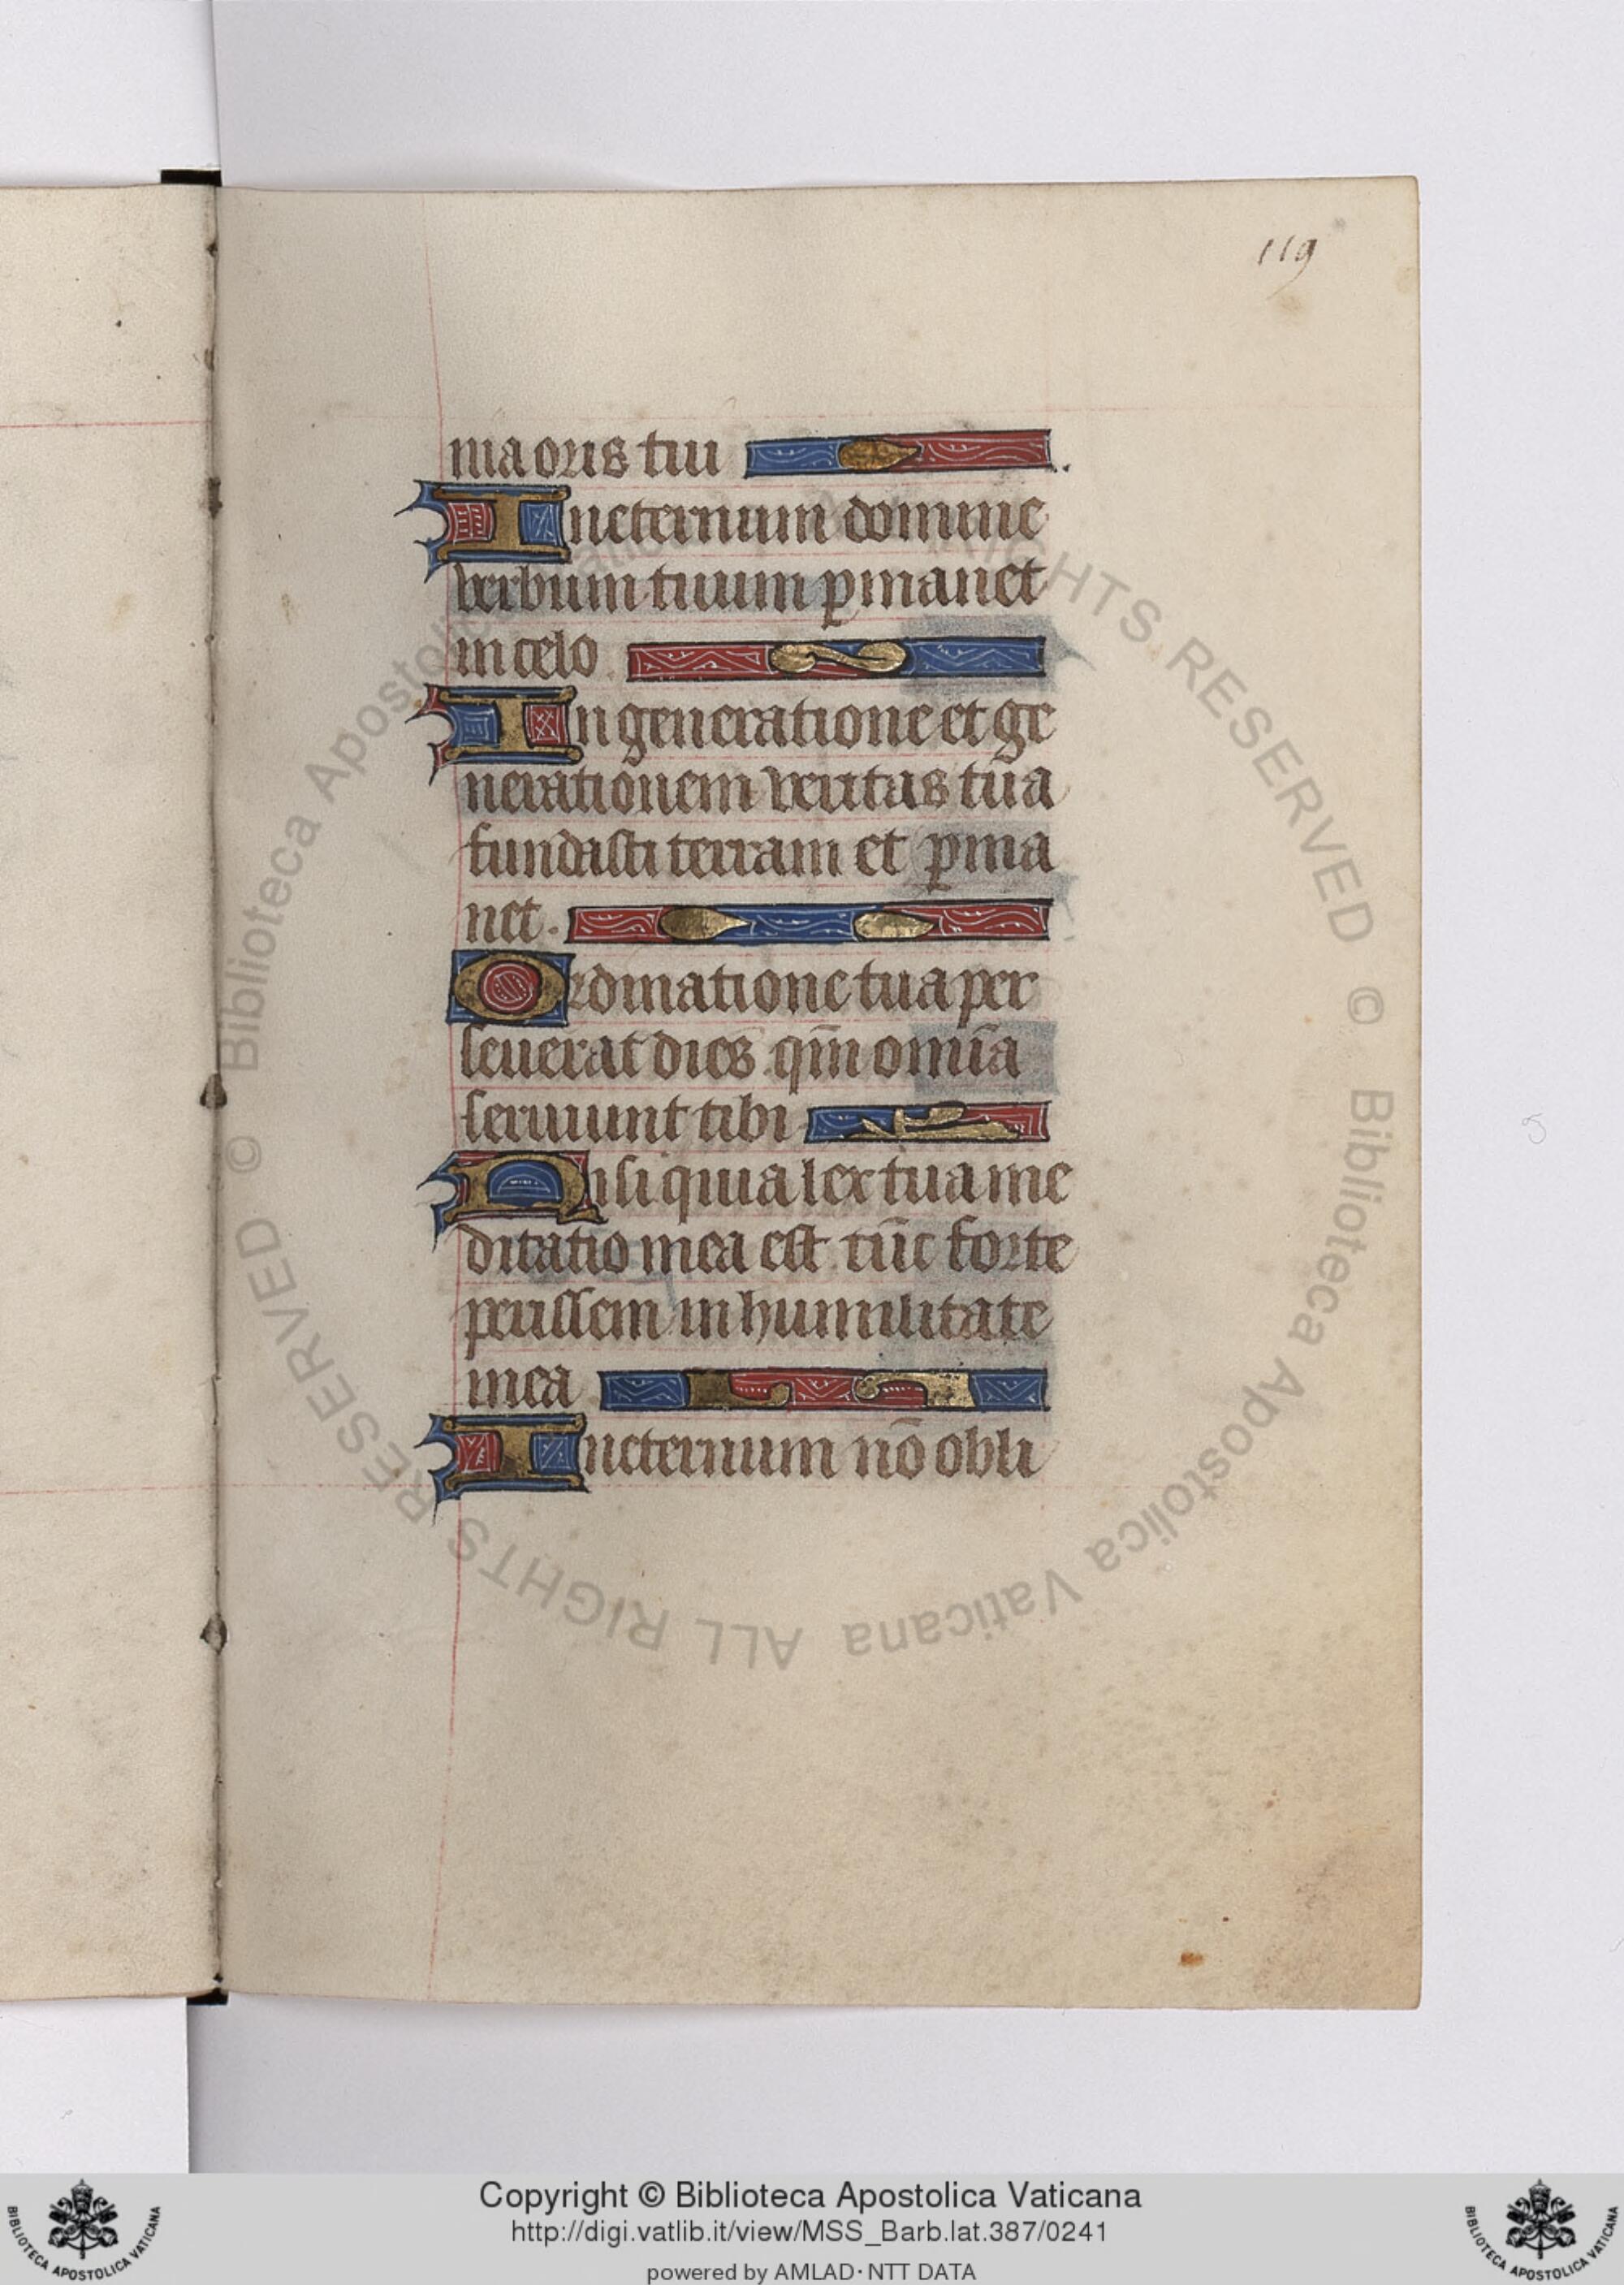 119
nia oris tui
In eternum domine
verbum tuum ꝑmanet
in celo
In generatione et ge
nerationem veritas tua
fundasti terram et ꝑma
net.
Ordinatione tua per
seuerat dies qm̄ om̄ia
seruiunt tibi
Nisi quia lex tua me
ditatio mea est tūc forte
perissem in humilitate
mea
In eternum nō obli
© Biblioteca Apostolica Vaticana ALL RIGHTS RESERVED © Biblioteca Apostolica Vaticana ALL RIGHTS RESERVED
Copyright © Biblioteca Apostolica Vaticana
http://digi.vatlib.it/view/MSS_Barb.lat.387/0241
powered by AMLAD·NTT DATA
BIBLIOTECA APOSTOLICA VATICANA
BIBLIOTECA APOSTOLICA VATICANA